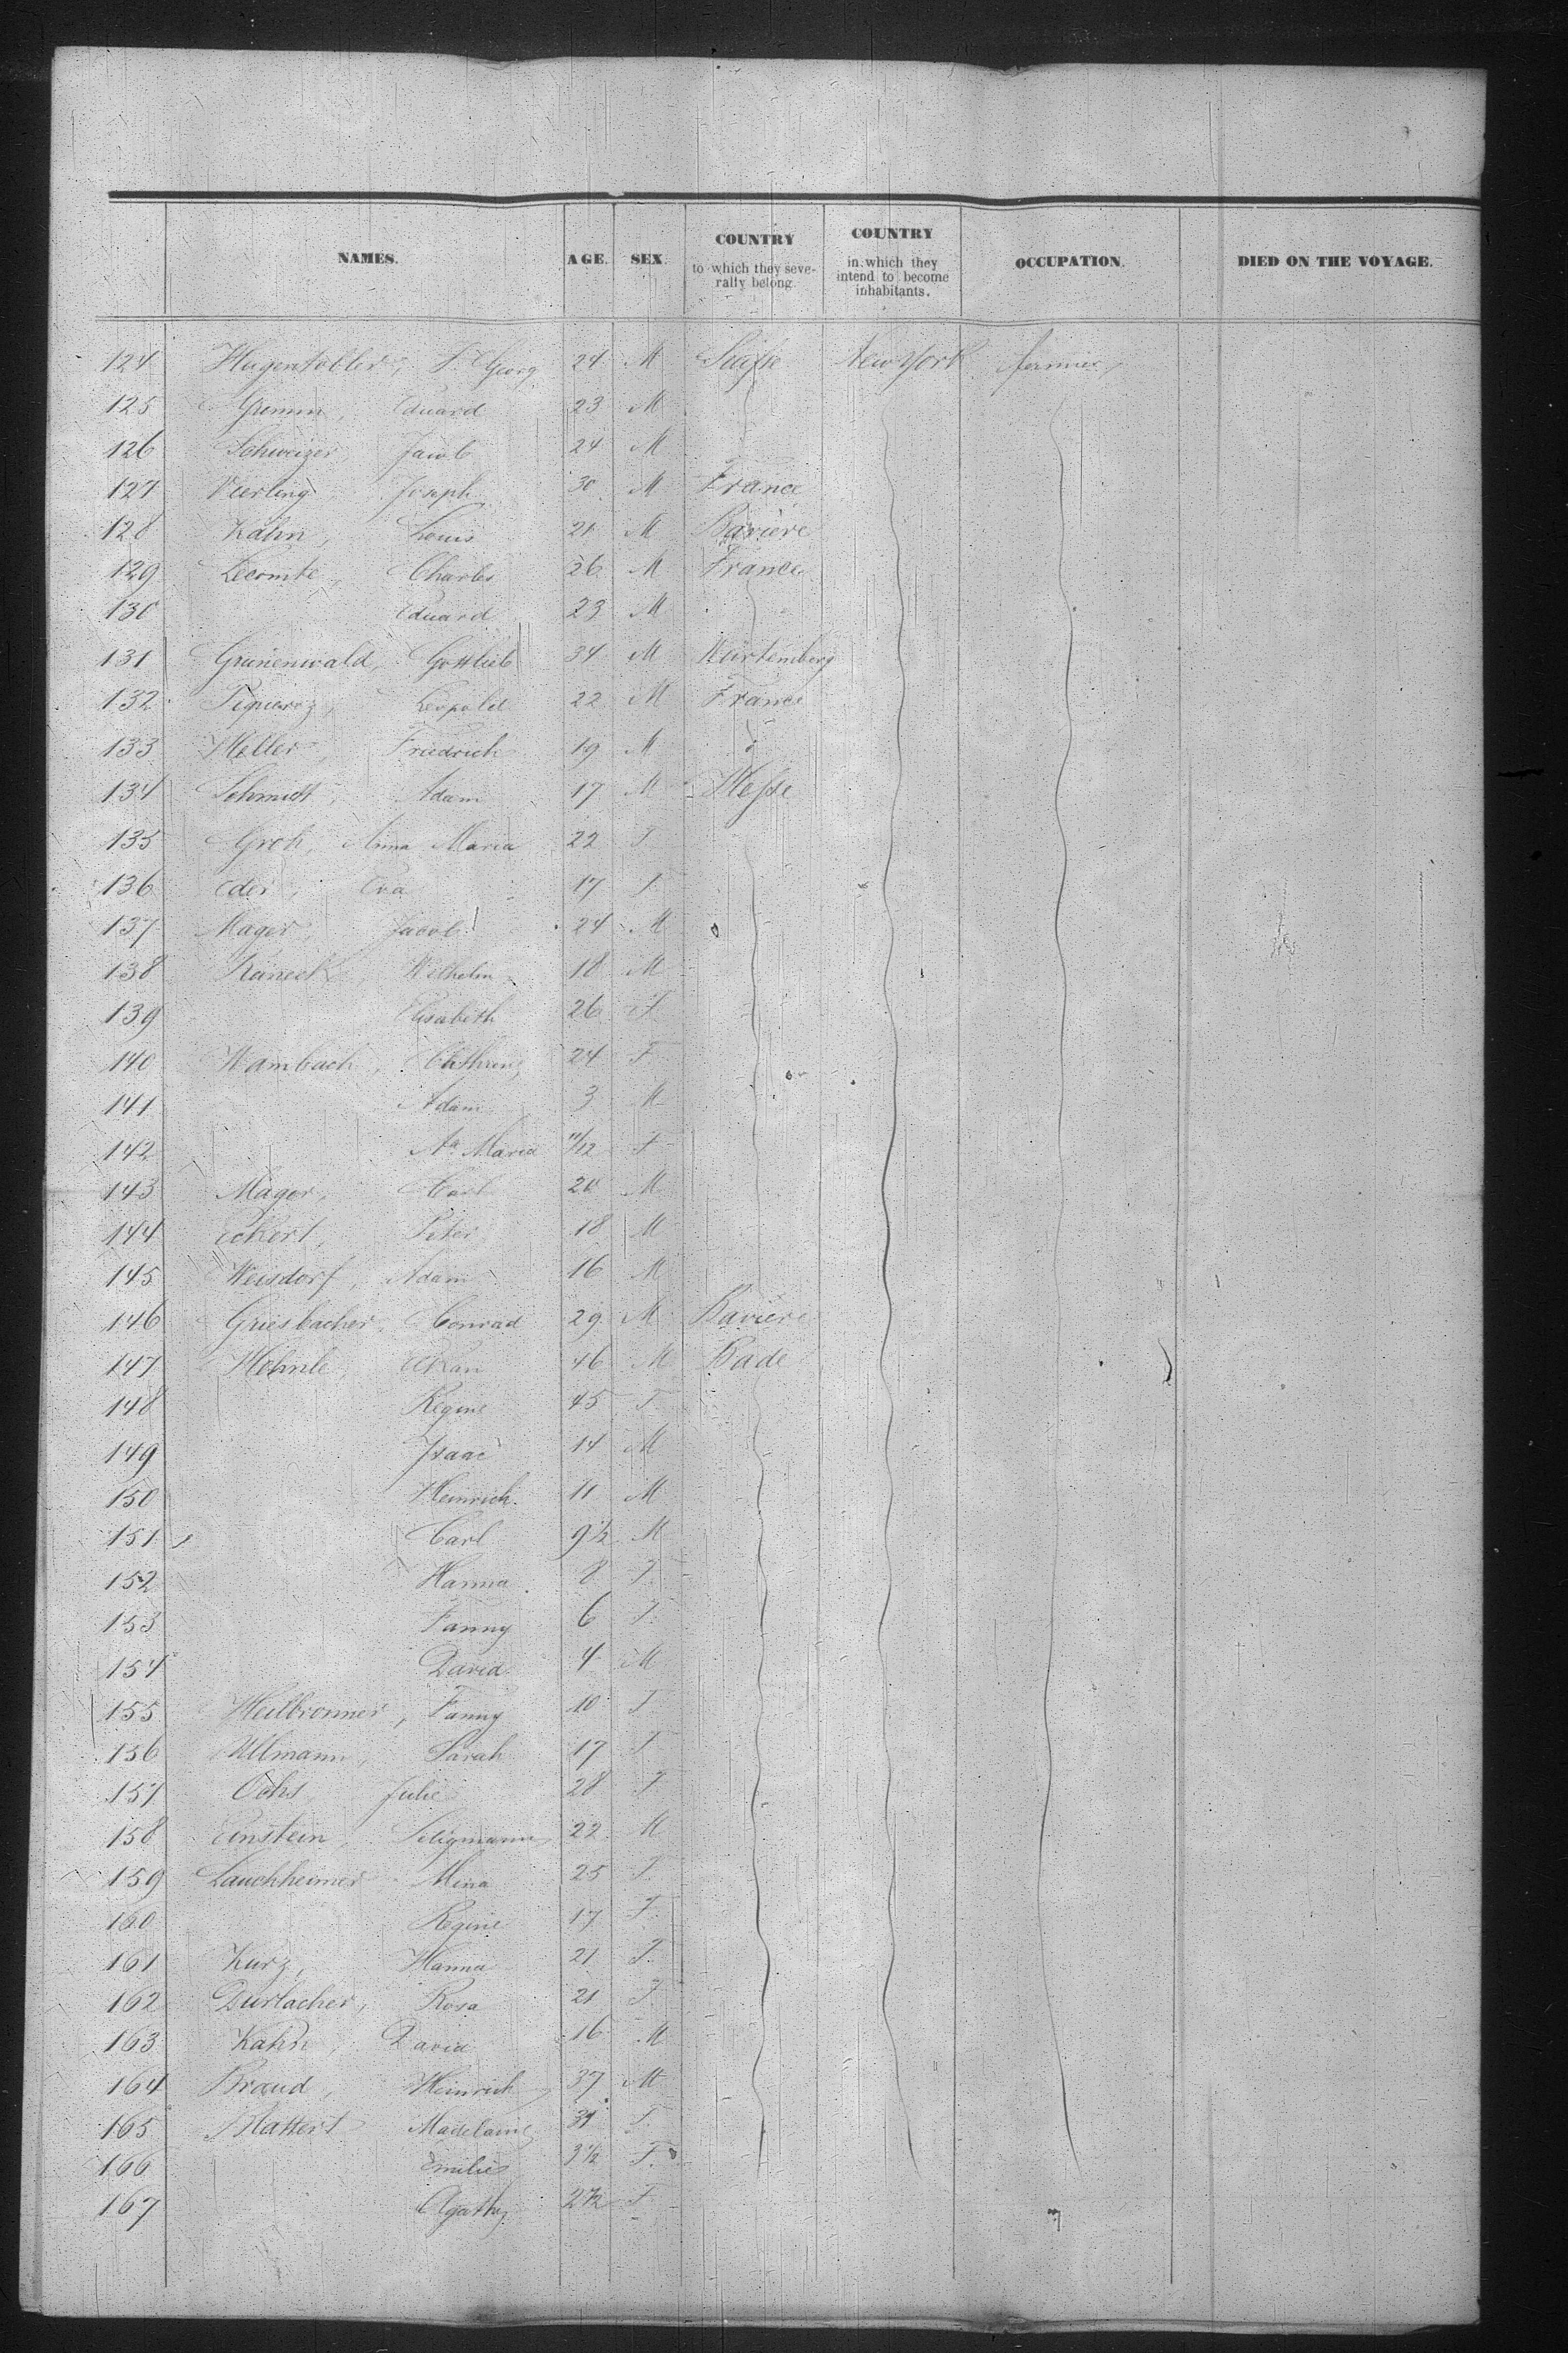 NAMES. AGE. SEX. COUNTRY to which they severally belong. COUNTRY in which they intend to become inhabitants. OCCUPATION. DIED ON THE VOYAGE.
124 Hugentobler, J. Georg 24 M Suisse New York farmer
125 Gremm, Eduard 23 M
126 Schweizer Jacob 24 M
127 Vierling Joseph 30 M France
128 Kahn, Louis 21 M Bavière
129 Lecomte, Charles 26 M France
130 Eduard 23 M
131 Grünenwald, Gottlieb 34 M Würtemberg
132 Piquerez, Leopold 22 M France
133 Heller, Friedrich 19 M
134 Schmidt, Adam 17 M Hesse
135 Groh, Anna Maria 22 F
136 Eder, Eva 17 F
137 Mager, Jacob 24 M
138 Wilhelm 18 M
139 Elisabeth 26 F
140 Wambach, Cathrine 24 F
141 Adam 3 M
142 Aa Maria 11/12 F
143 Mager, Carl 20 M
144 Eckert, Peter 18 M
145 Weisdorf, Adam 16 M
146 Griesbacher, Conrad 29 M Bavière
147 Höhnle, 46 M Bade
148 Regine 45 F
149 Isaac 14 M
150 Heinrich 11 M
151 Carl 9½ M
152 Hanna 8 F
153 Fanny 6 F
154 David 4 M
155 Heilbronner, Fanny 10 F
156 Ullmann, Sarah 17 F
157 Ochs, Julie 28 F
158 Einstein, Seligmann 22 M
159 Lauchheimer Mina 25 F
160 Regine 17 F
161 Kurz, Hanna 21 F
162 Durlacher, Rosa 21 F
163 Kahn, David 16 M
164 Braud, Heinrich 37 M
165 Blattert Madelaine 31 F
166 Emilie 3½ F
167 Agathe 2½ F